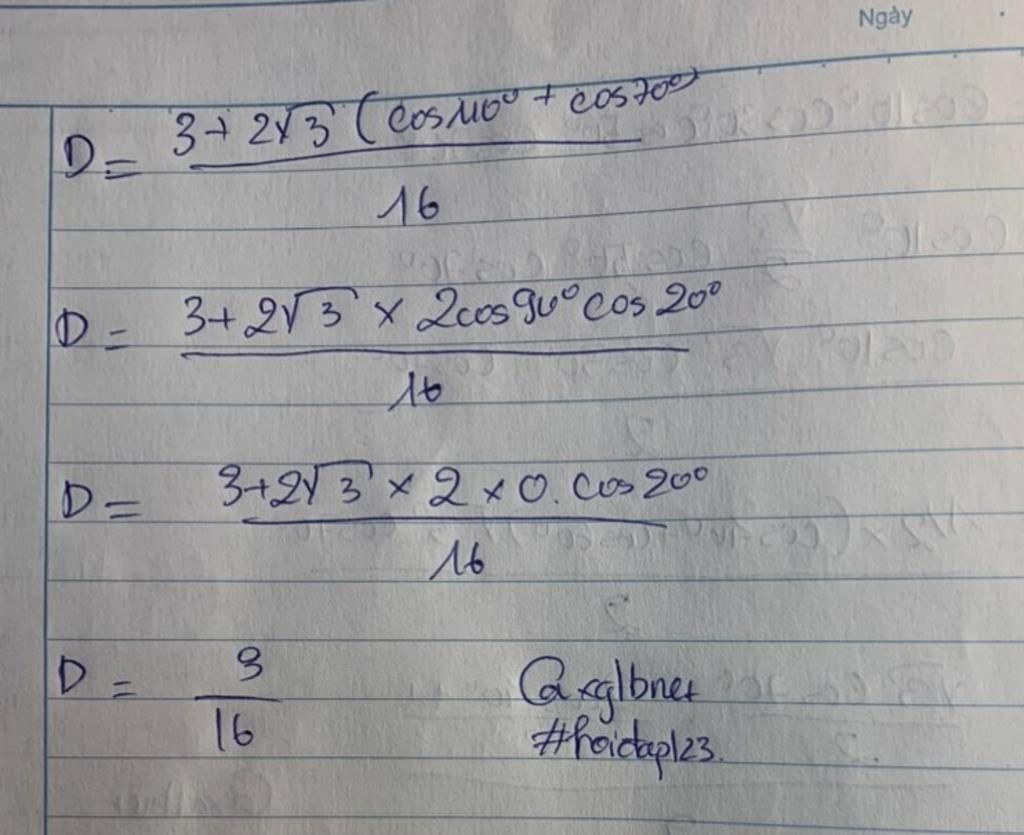 Ngày
D = 3 + 2√3 (cos110° + cos70°)
16
D = 3 + 2√3 × 2cos90° cos 20°
16
D = 3+2√3 × 2 × 0. cos 20°
16
D = 3
16
@xglbnet
#hoidap123.